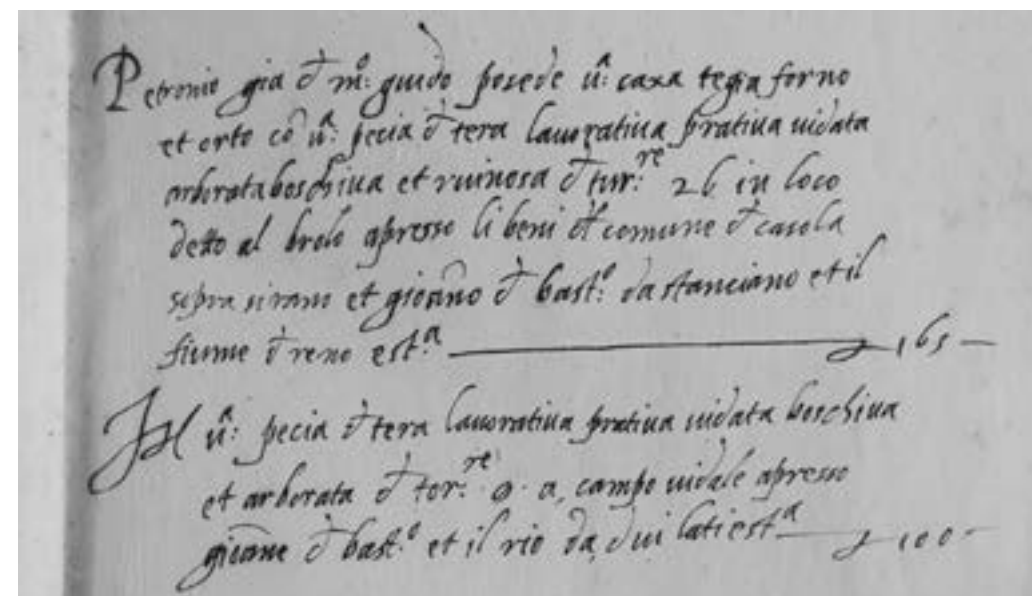 Petronio gia đ m.º guido posede ũ.ª caxa tegia forno
et orto cõ ũ.ª pecia đ tera lauoratiua pratiua uidata
arborata boschiua et ruinosa đ tur.re 26 in loco
detto al brolo apresso li beni đl comune đ casola
sopra sirano et gioãno đ bast.º da stanciano et il
fiume đ reno est.ª 165
ũ.ª pecia đ tera lauoratiua pratiua uidata boschiua
et arborata đ tor.re 9. a campo uidale apresso
giuãne đ bast.º et il rio da dui lati est.ª 100